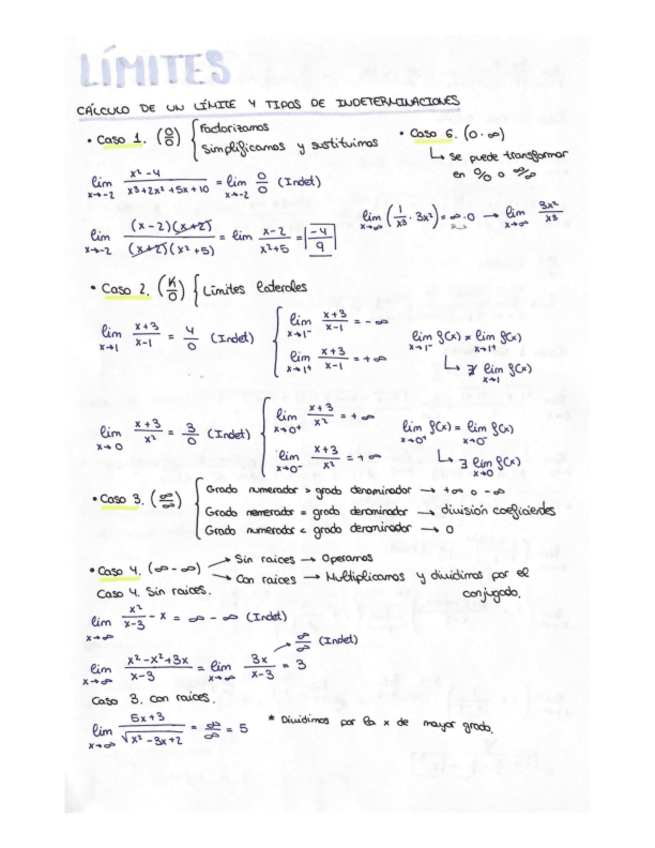 LÍMITES
CÁLCULO DE UN LÍMITE Y TIPOS DE INDETERMINACIONES
• Caso 1. (0/0) { Factorizamos
Simplificamos y sustituimos
lim x→-2 (x²-4)/(x³+2x²+5x+10) = lim x→-2 0/0 (Indet)
lim x→-2 (x-2)(x+2)/(x+2)(x²+5) = lim (x-2)/(x²+5) = -4/9
• Caso 6. (0·∞)
↳ Se puede transformar
en 0/0 o ∞/∞
lim x→∞ (1/x³ · 3x²) = ∞·0 → lim x→∞ 3x²/x³
• Caso 2. (K/0) { Límites laterales
lim x→1 (x+3)/(x-1) = 4/0 (Indet)
lim x→1⁻ (x+3)/(x-1) = -∞
lim x→1⁺ (x+3)/(x-1) = +∞
lim x→1⁻ f(x) ≠ lim x→1⁺ f(x)
↳ ∄ lim x→1 f(x)
lim x→0 (x+3)/x² = 3/0 (Indet)
lim x→0⁺ (x+3)/x² = +∞
lim x→0⁻ (x+3)/x² = +∞
lim x→0⁺ f(x) = lim x→0⁻ f(x)
↳ ∃ lim x→0 f(x)
• Caso 3. (∞/∞) { Grado numerador > grado denominador → +∞ o -∞
Grado nemerador = grado denominador → división coeficientes
Grado numerador < grado denominador → 0
• Caso 4. (∞-∞) → Sin raices → Operamos
→ Con raices → Multiplicamos y dividimos por el
conjugado.
Caso 4. Sin raices.
lim x→∞ x²/(x-3) - x = ∞ - ∞ (Indet)
∞/∞ (Indet)
lim x→∞ (x²-x²+3x)/(x-3) = lim x→∞ 3x/(x-3) = 3
Caso 3. con raices.
lim x→∞ (5x+3)/√(x²-3x+2) = ∞/∞ = 5 * Dividimos por la x de mayor grado.